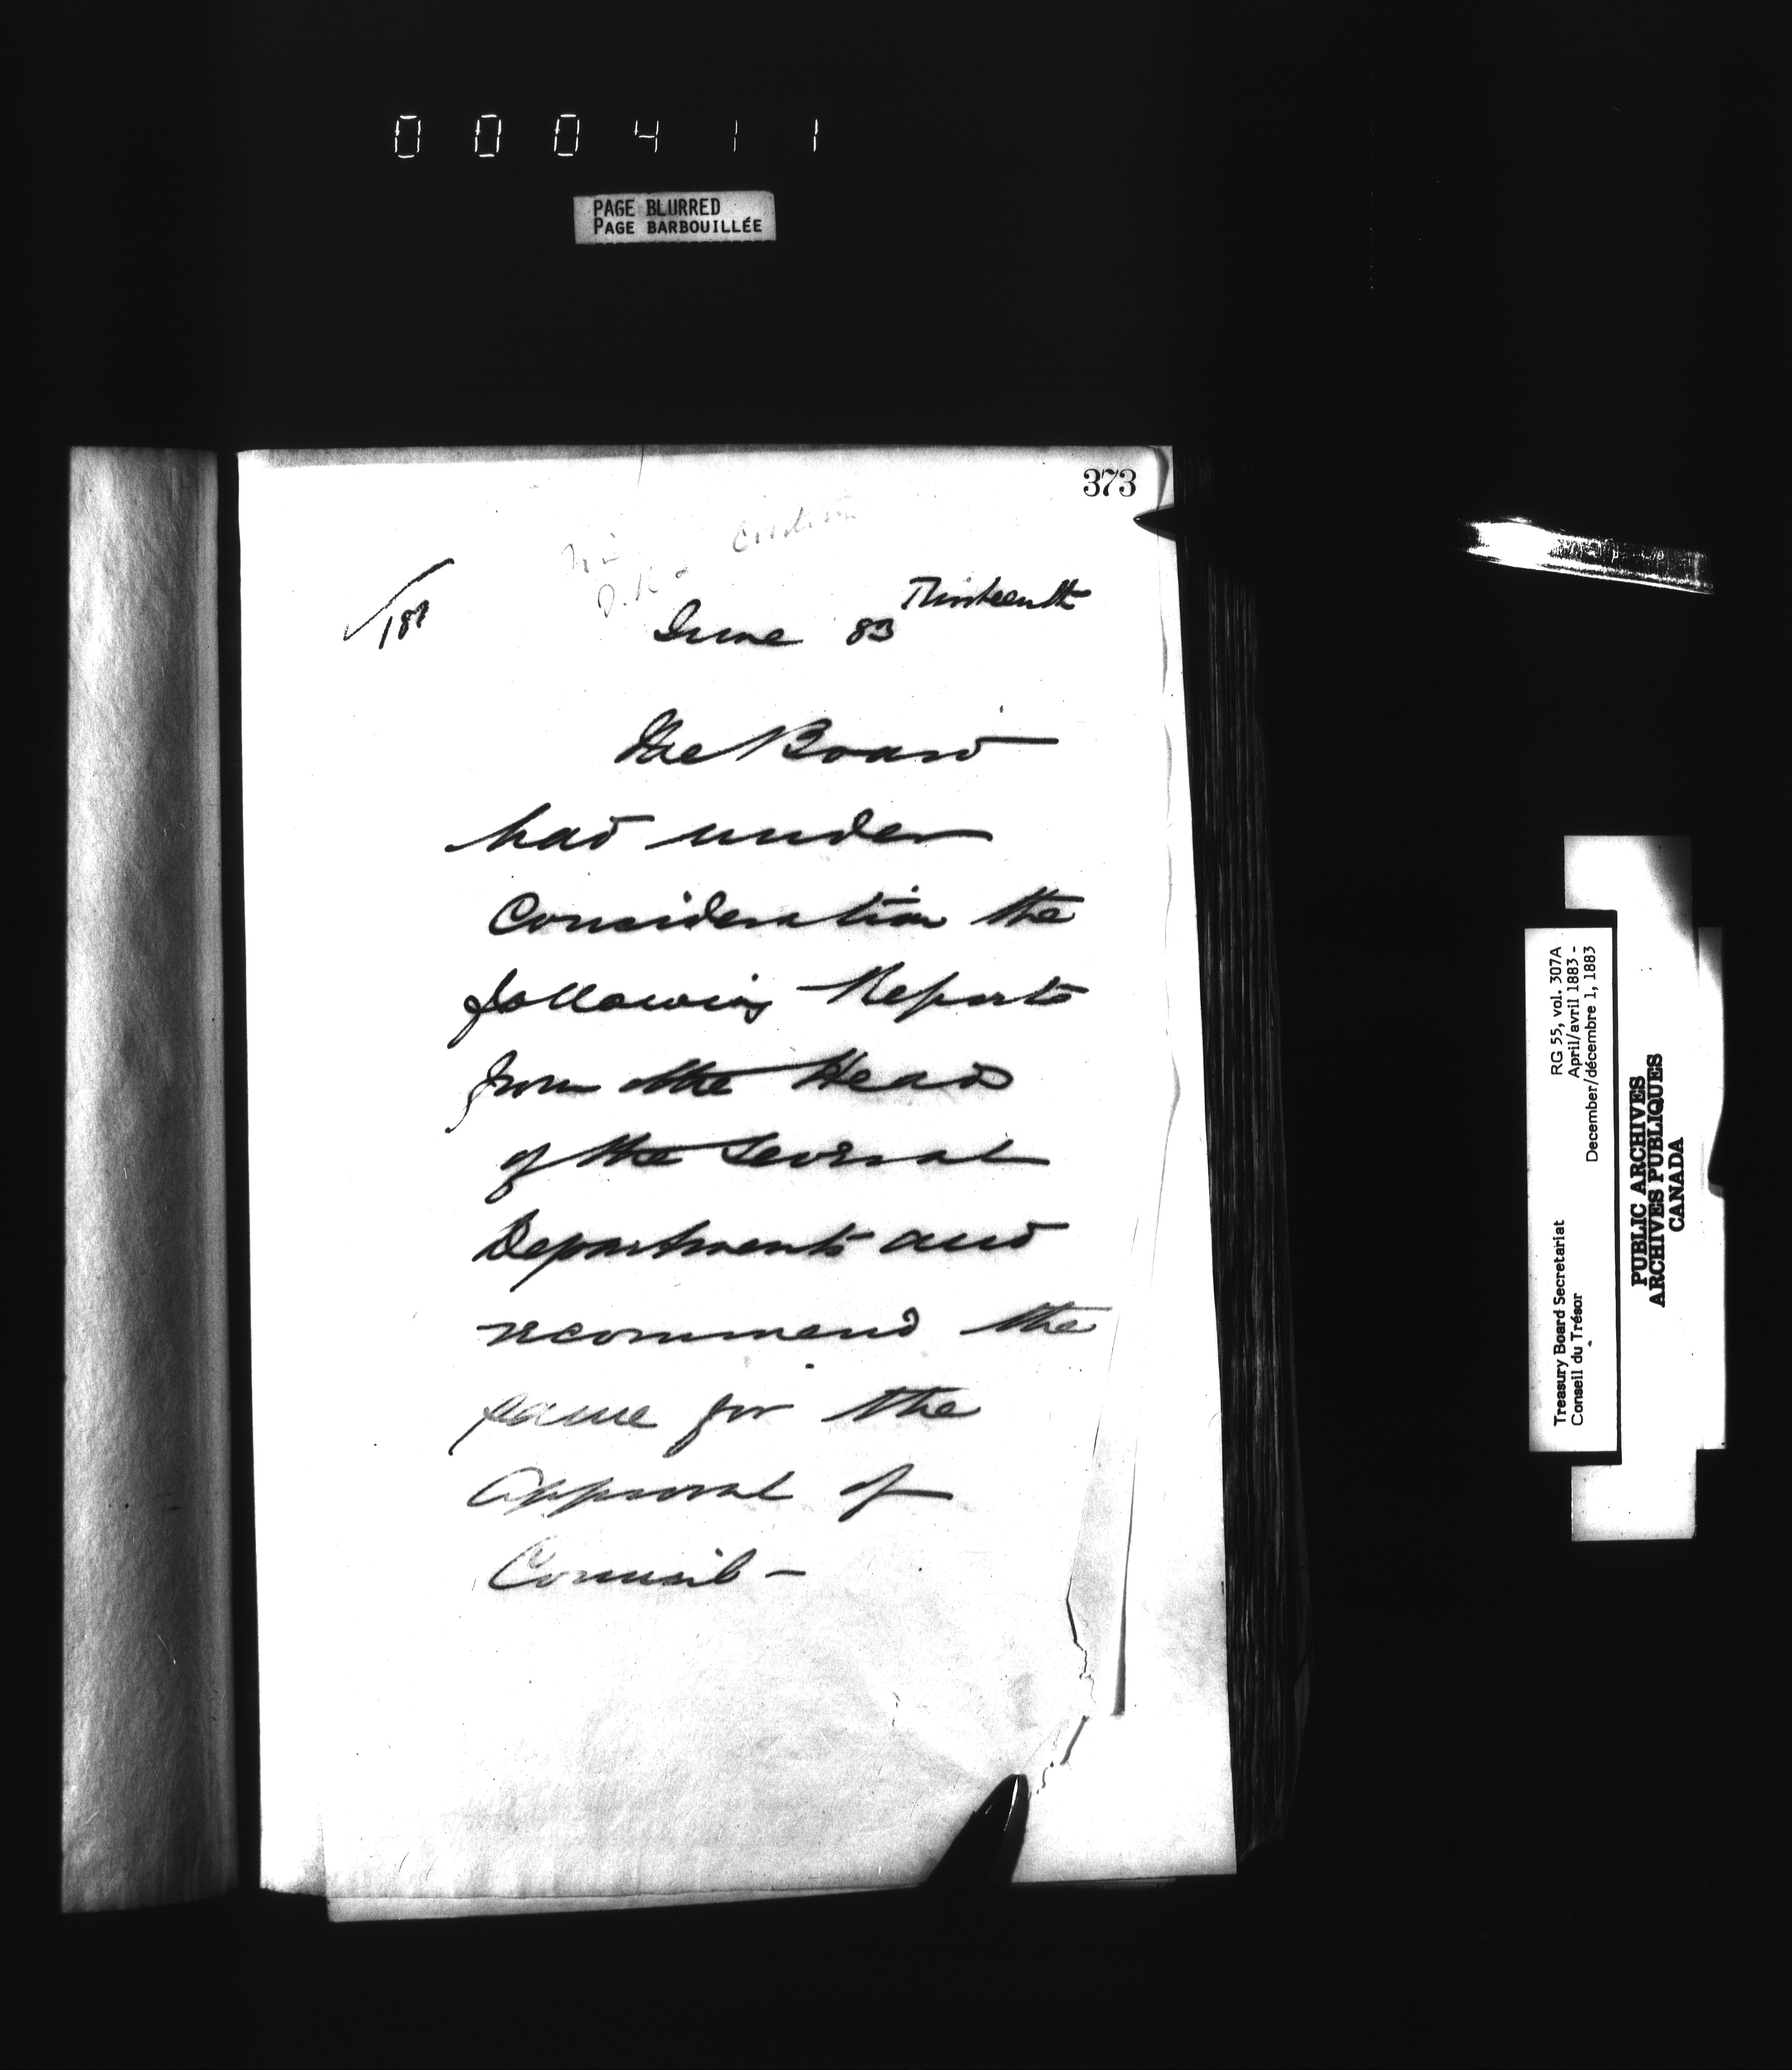 0 0 0 4 1 1
PAGE BLURRED
PAGE BARBOUILLÉE
373
Thirteenth
June 83
The Board
had under
Consideration the
following Reports
from the Head
of the Several
Departments and
recommend the
same for the
Approval of
Council –
RG 55, vol. 307A
April/avril 1883 -
December/décembre 1, 1883
Treasury Board Secretariat
Conseil du Trésor
PUBLIC ARCHIVES
ARCHIVES PUBLIQUES
CANADA